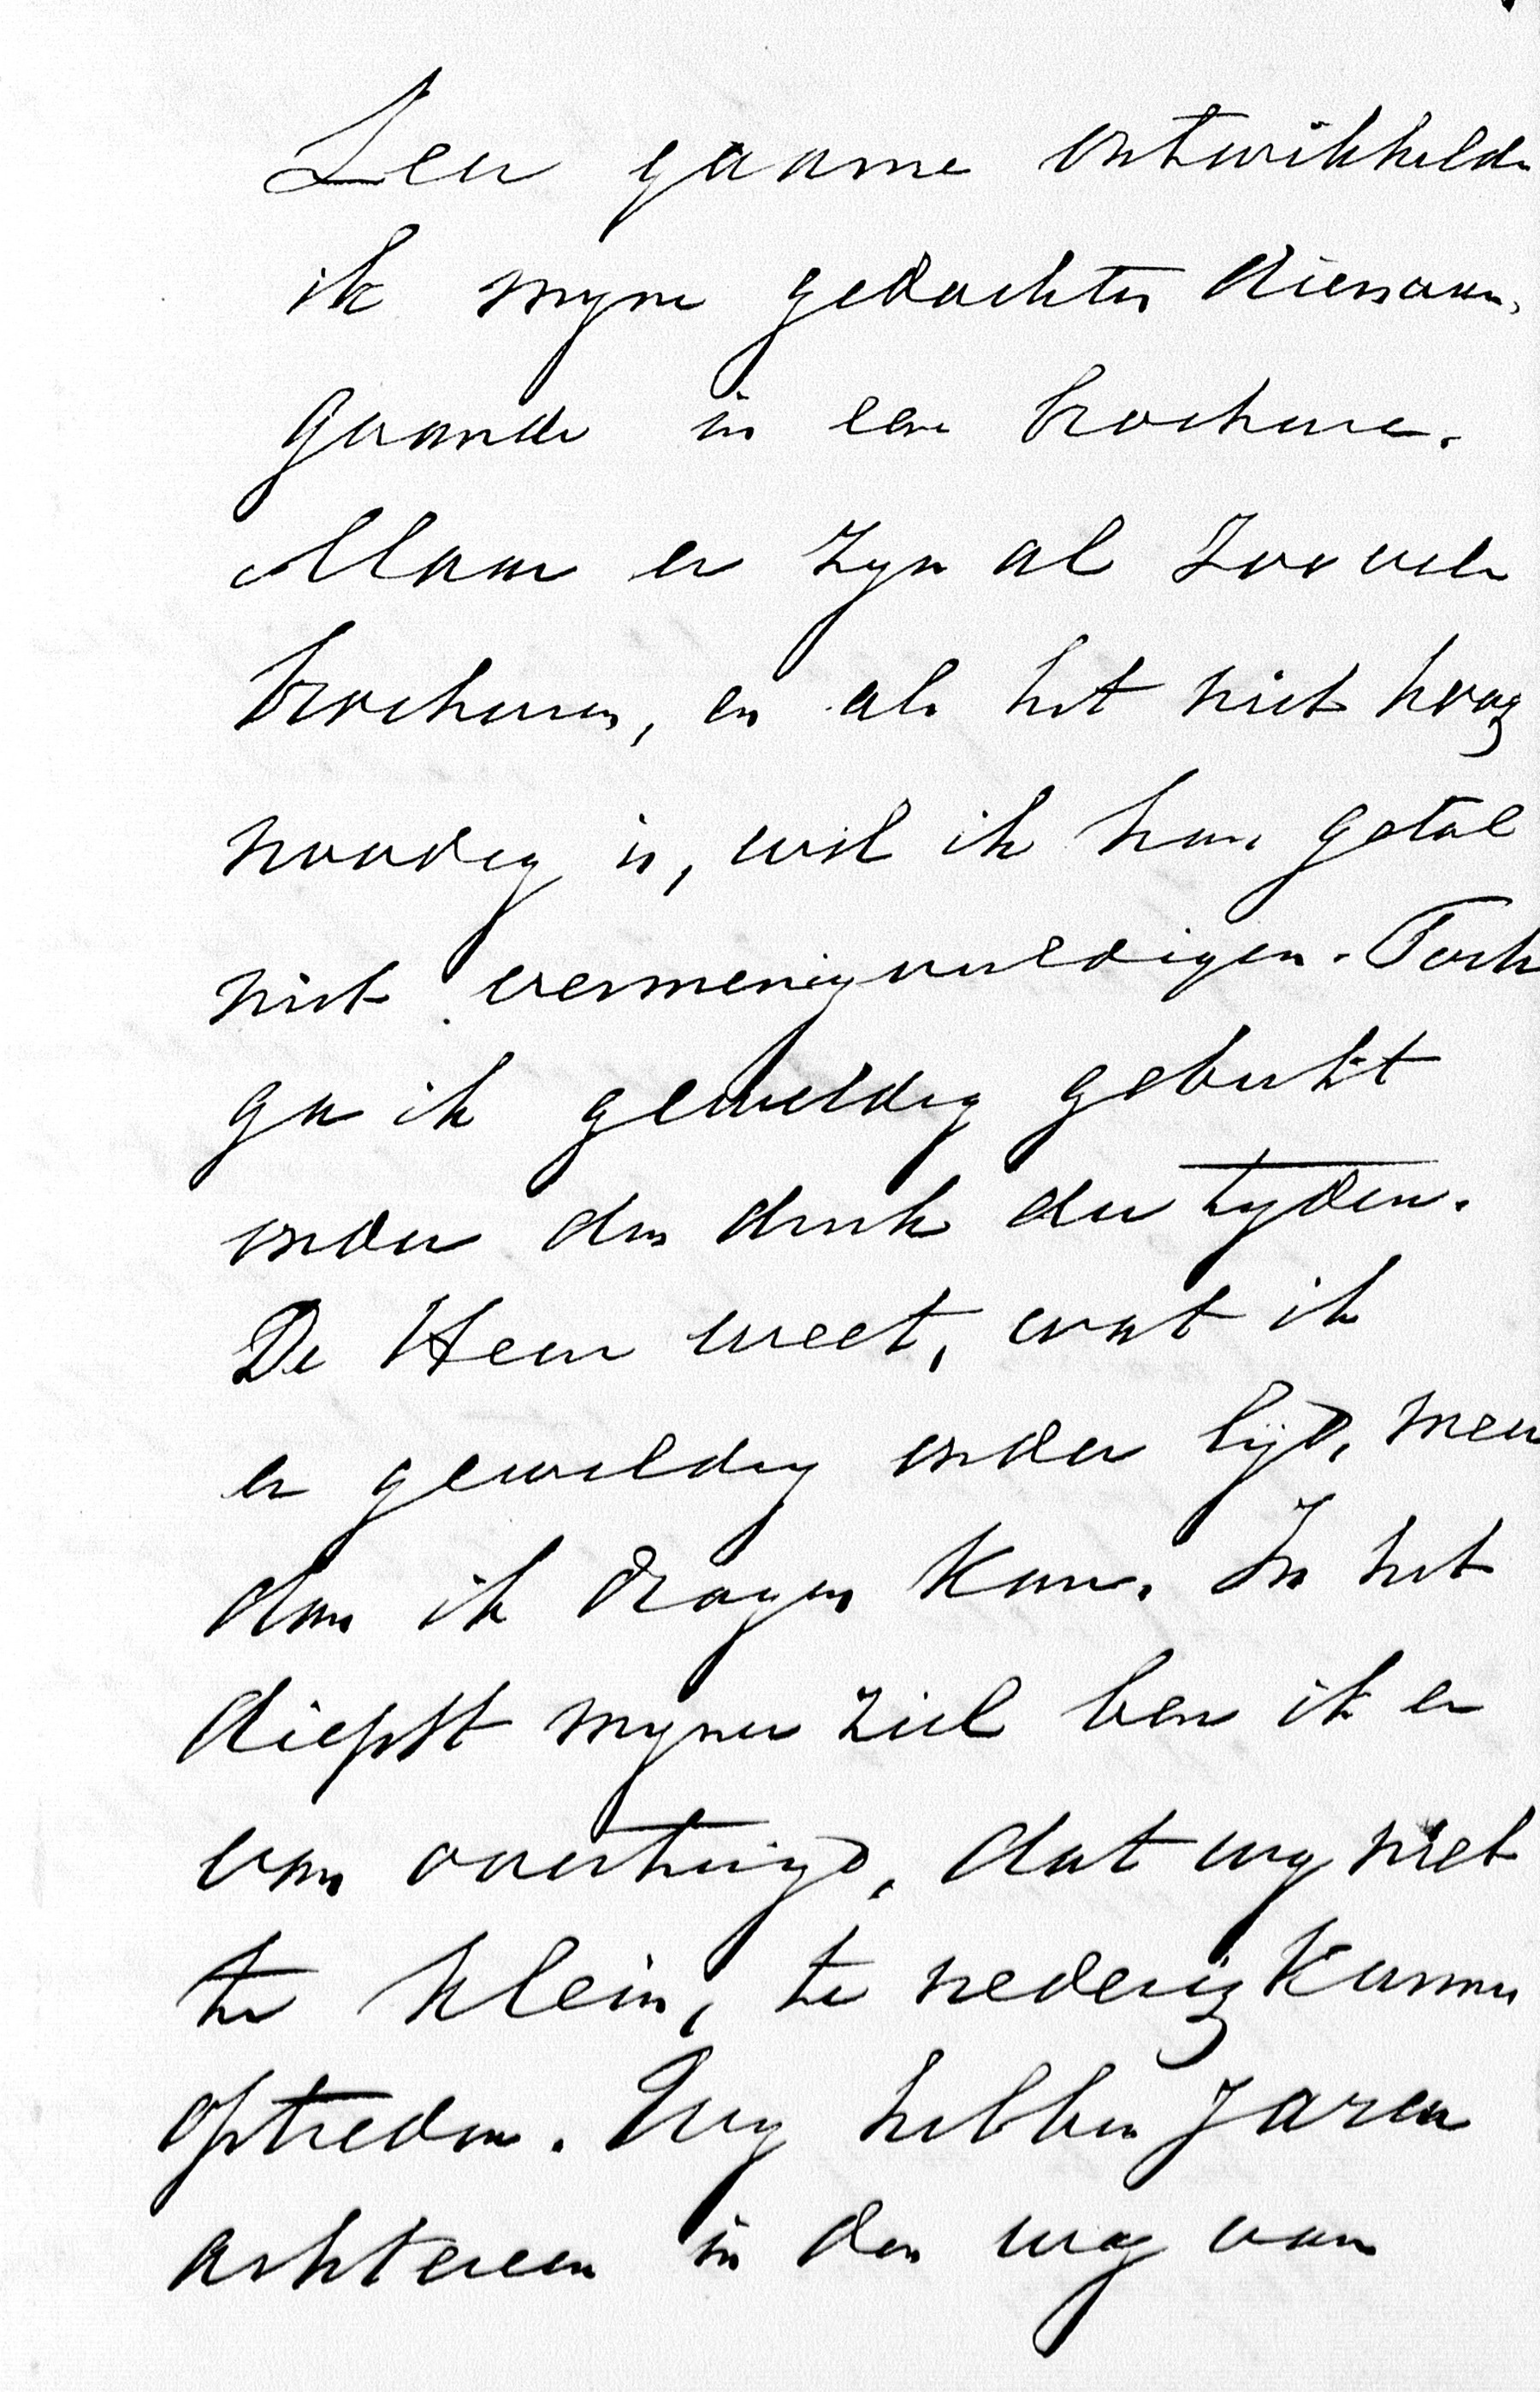 Zeer gaarne ontwikkelde
ik myne gedachten dienaan,
gaande in een brochure.
Maar er zyn al zoo vele
brochuren, en als het niet hoog
noodig is, wil ik hun getal
niet vermenigvuldigen. Toch
ga ik geweldig gebukt
onder den druk der tyden.
De Heer weet, wat ik
er geweldig onder lijd, meer
dan ik dragen kan. In het
diepst myner ziel ben ik er
van overtuigd, dat wy niet
te klein, te nederig kunnen
optreden. Wy hebben jaren
achtereen in den weg van